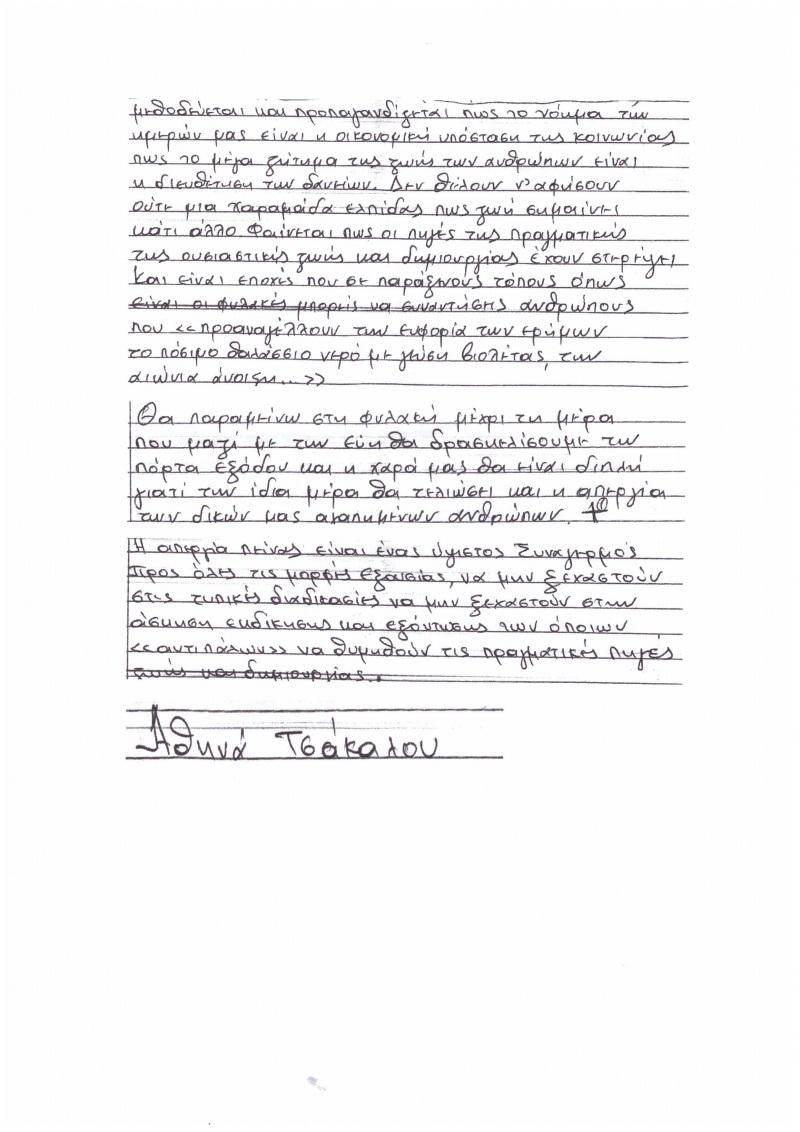 μεθοδεύεται και προπαγανδίζεται πως το νόημα των
ημερών μας είναι η οικονομική υπόσταση της κοινωνίας
πως το μέγα ζήτημα της ζωής των ανθρώπων είναι
η διευθέτηση των δανείων. Δεν θέλουν ν' αφήσουν
ούτε μια χαραμάδα ελπίδας πως ζωή σημαίνει
κάτι άλλο. Φαίνεται πως οι πηγές της πραγματικής
της ουσιαστικής ζωής και δημιουργίας έχουν στερέψει
Και είναι εποχές που σε παράξενους τόπους όπως
είναι οι φυλακές μπορείς να συναντήσεις ανθρώπους
που <<προαναγέλλουν την ευφορία των ερήμων
το πόσιμο θαλάσσιο νερό με γεύση βιολέτας, την
αιώνια άνοιξη...>>
Θα παραμείνω στη φυλακή μέχρι τη μέρα
που μαζί με την Εύη θα δρασκελίσουμε την
πόρτα εξόδου και η χαρά μας θα είναι διπλή
γιατί την ίδια μέρα θα τελειώσει και η απεργία
των δικών μας αγαπημένων ανθρώπων.
Η απεργία πείνας είναι ένας ύψιστος συναγερμός
προς όλες τις μορφές εξουσίας, να μην ξεχαστούν
στις τυπικές διαδικασίες να μην ξεχαστούν στην
άσκηση εκδίκησης και εξόντωσης των όποιων
<<αντιπάλων>> να θυμηθούν τις πραγματικές πηγές
ζωής και δημιουργίας.
Αθηνά Τσάκαλου